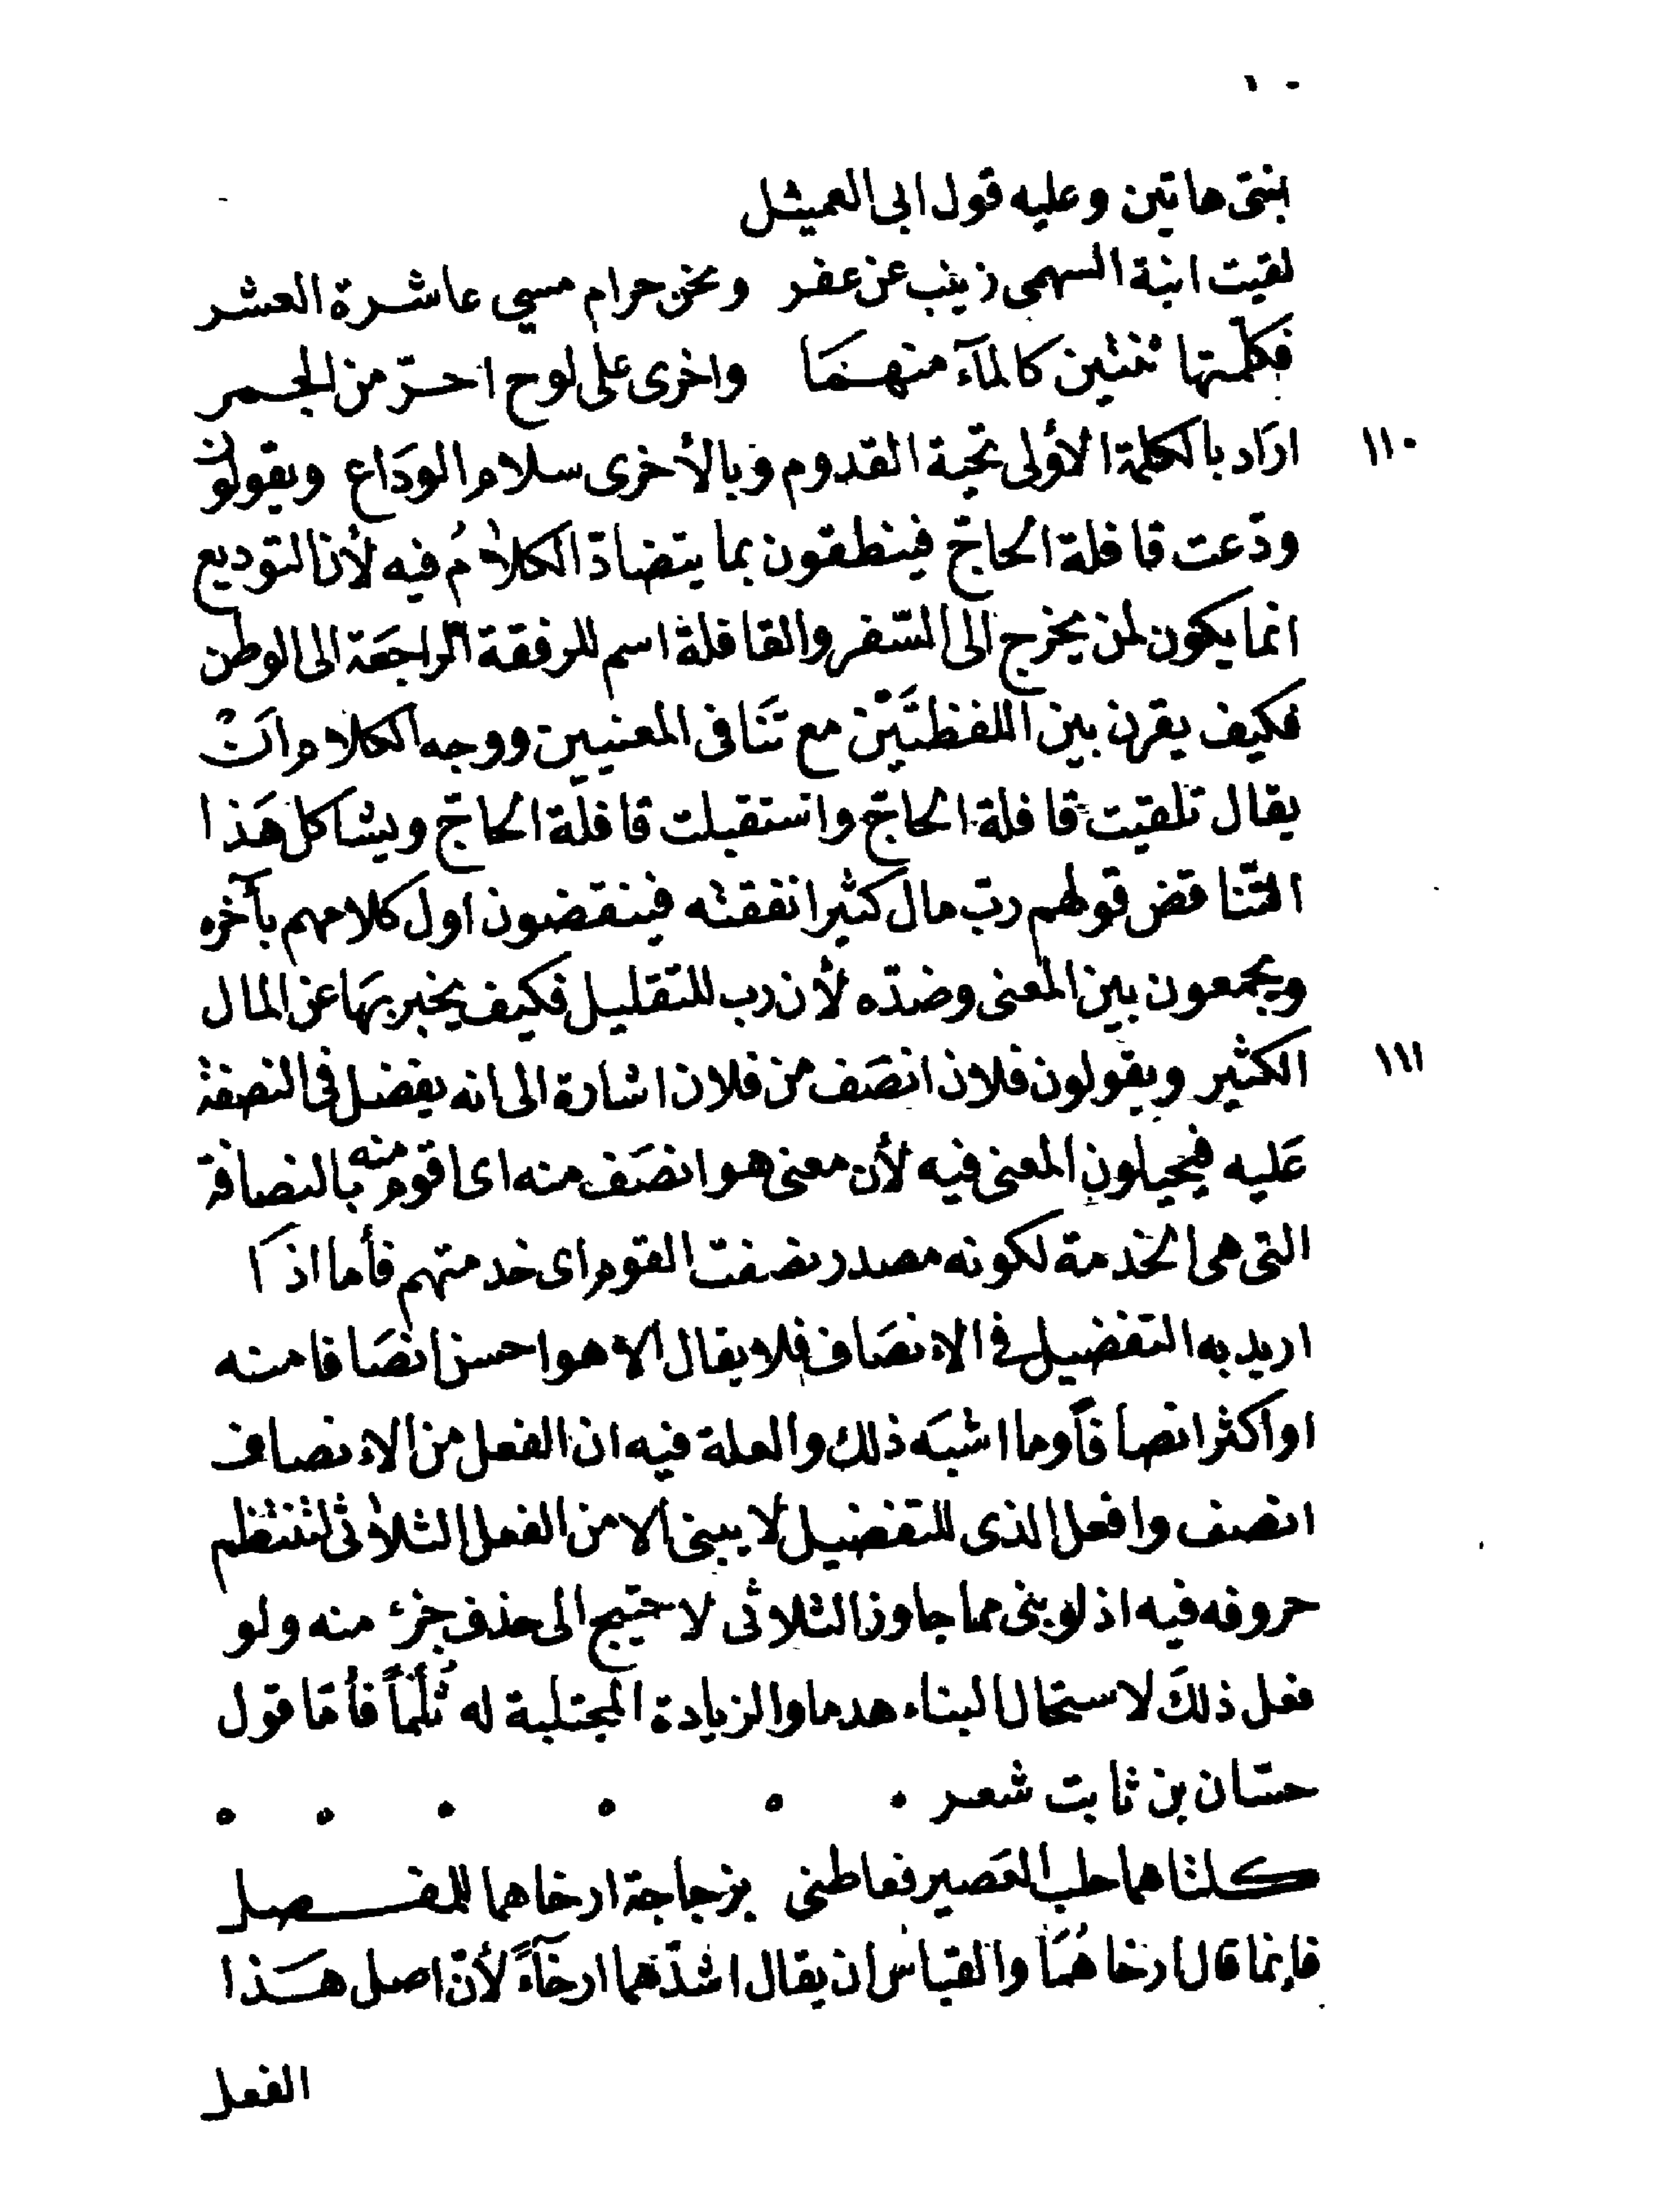 ١٠
بنتى هاتين وعليه قول ابى العميثل
لقيت ابنة السهمى زينب عن عفر ونحن حرام مسى عاشرة العشر
فكلّمتها ثنتين كالمآء منهمَا واخرى على لوح احرّ من الجمر
١١٠ ارَاد بالكلمة الأولى تحية القدوم وبالأخرى سلام الودَاع ويقولون
ودّعت قافلة الحاجّ فينطقون بما يتضادّ الكلامُ فيه لأن التوديع
انما يكون لمن يخرج الى السّفر والقافلة اسم للرفقة الرّاجعَة الى الوطن
فكيف يقرن بين اللفظتَيْن مع تنَافى المعنيين ووجه الكلام انْ
يقال تلقيت قافلة الحاجّ واستقبلت قافلة الحاجّ ويشاكل هَذا
التّناقض قولهم ربّ مال كثير انفقته فينقضون اول كلامهم بآخره
ويجمعون بين المعنى وضدّه لأن رب للتقليل فكيف يخبر بهَا عن المال
١١١ الكثير ويقولون فلان انصَف من فلان اشارة الى انه يفضل فى النصفة
عَليه فيحيلون المعنى فيه لأن معنى هو انصَف منه اى اقوم منه بالنصافة
التى هى الخدمة لكونه مصدر نصفت القوم اى خدمتهم فأما اذَا
اريد به التفضيل فى الانصَاف فلا يقال الا هو احسن انصَافا منه
او اكثر انصافاً وما اشبَه ذلك والعلة فيه ان الفعل من الانصاف
انصف وافعل الذى للتفضيل لا يبنى الا من الفعل الثلاثى لتنتظم
حروفه فيه اذ لو بنى مما جاوز الثلاثى لاحتيج الى حذف جزء منه ولو
فعل ذلكَ لاستحال البناء هدما والزيادة المجتلبة له ثُلْماً فأمّا قول
حسّان بن ثابت شعر
كلتاهما حلب العَصير فعاطنى بزجاجة ارخاهما للمفصل
فإنما قال ارخاهُمَا والقياس ان يقال اشدّهما ارخآءً لأنّ اصل هَذا
الفعل